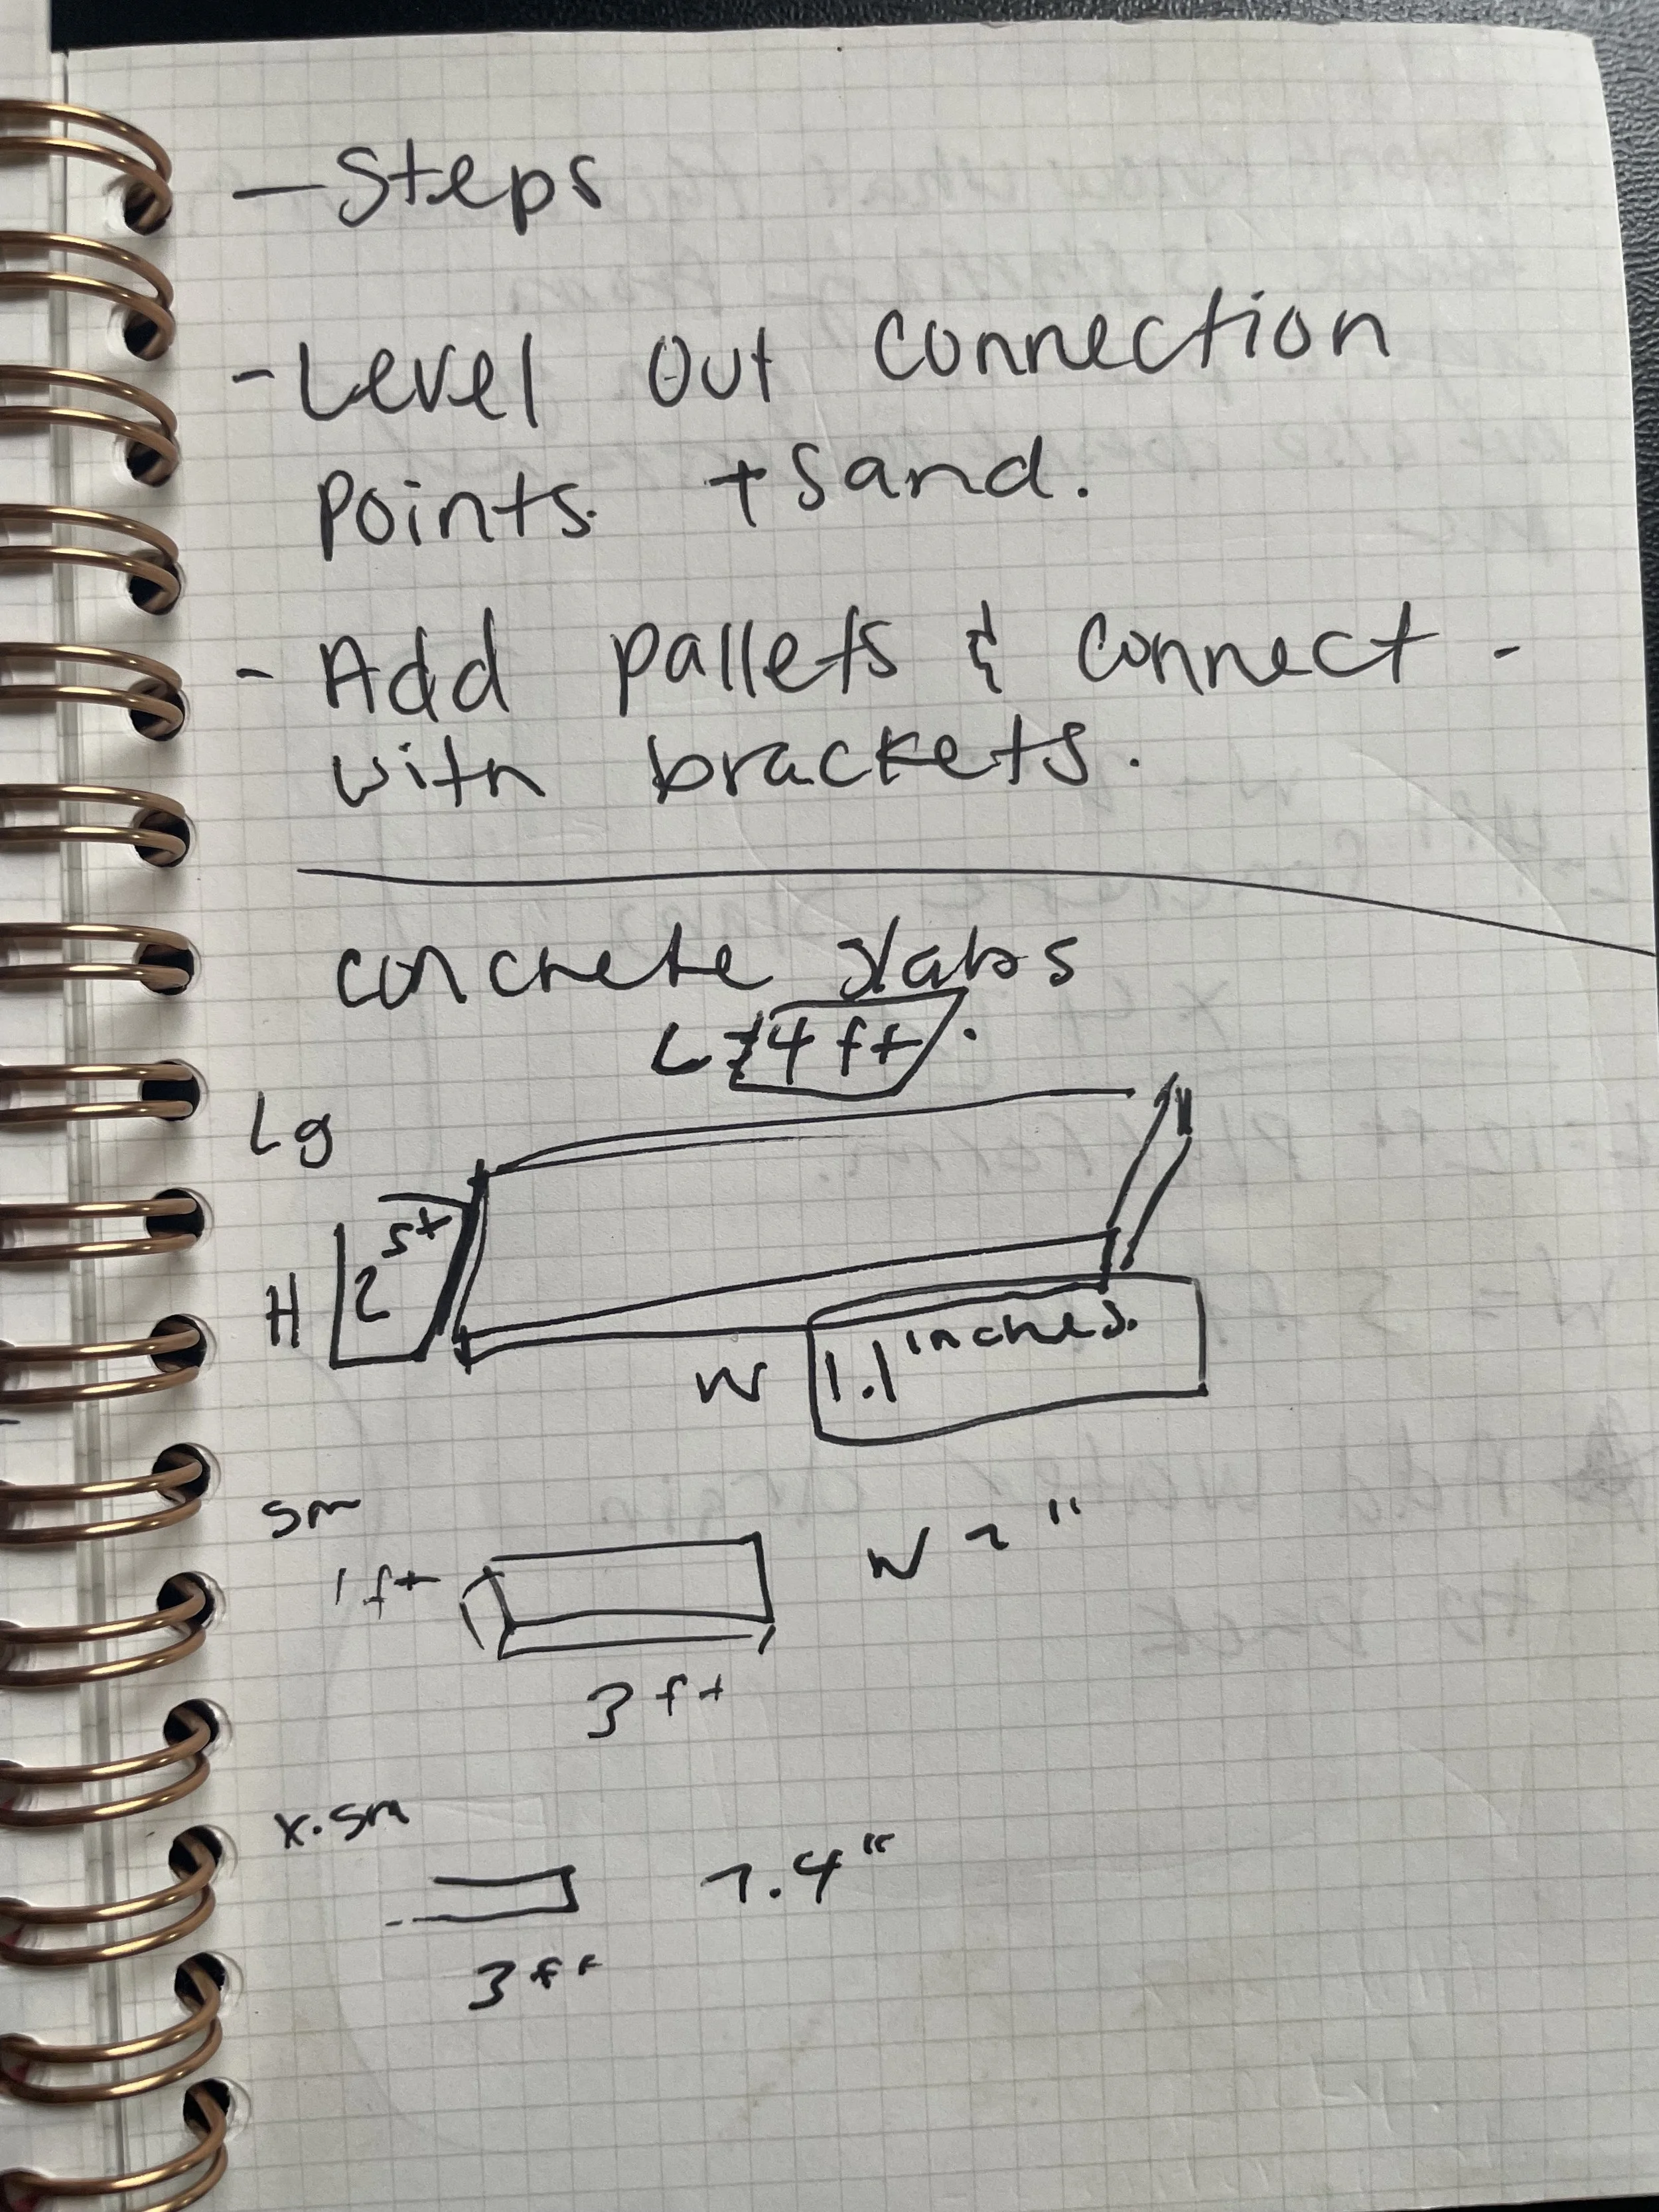 - Steps
- Level Out Connection
Points. + Sand.
- Add pallets & connect -
with brackets.
concrete slabs
L 4 ft.
Lg
H 2 ft
W 1.1 inches.
sm
1 ft
W 2"
3 ft
x.sm
1.4"
3 ft